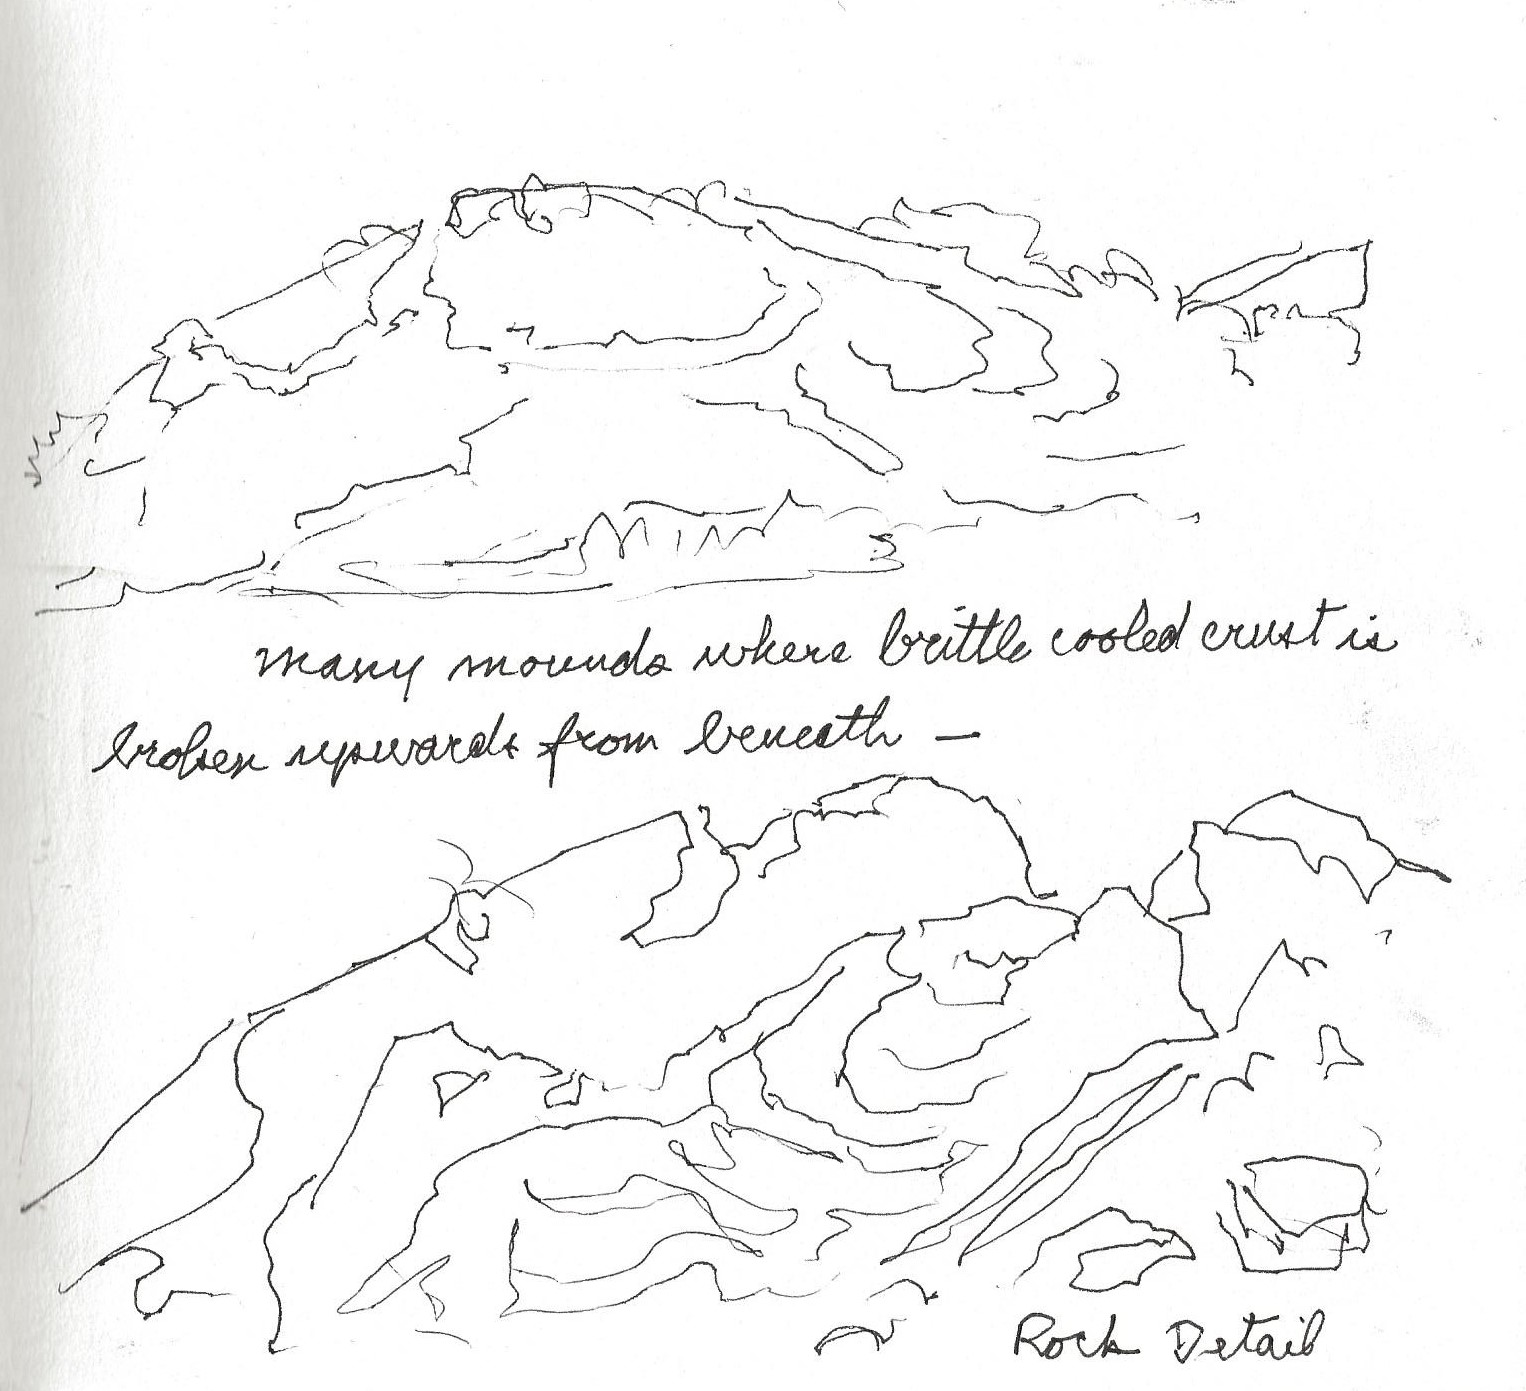 many mounds where brittle cooled crust is
broken upwards from beneath —
Rock Detail